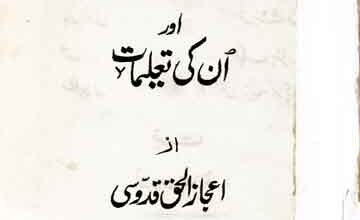 اور
اُن کی تعلیمات
از
اعجاز الحق قدّوسی